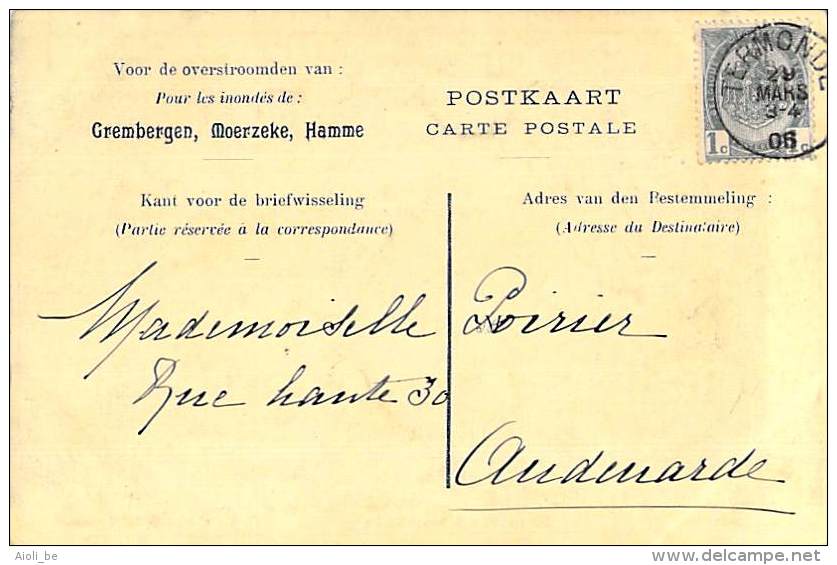 Voor de overstroomden van :
Pour les inondés de :
Grembergen, Moerzeke, Hamme
POSTKAART
CARTE POSTALE
TERMONDE
29
MARS
3-4
06
1c 1c
Kant voor de briefwisseling
(Partie réservée à la correspondance)
Adres van den Bestemmeling :
(Adresse du Destinataire)
Mademoiselle Poirier
Rue haute 30
Audenarde
Aioli_be
www.delcampe.net